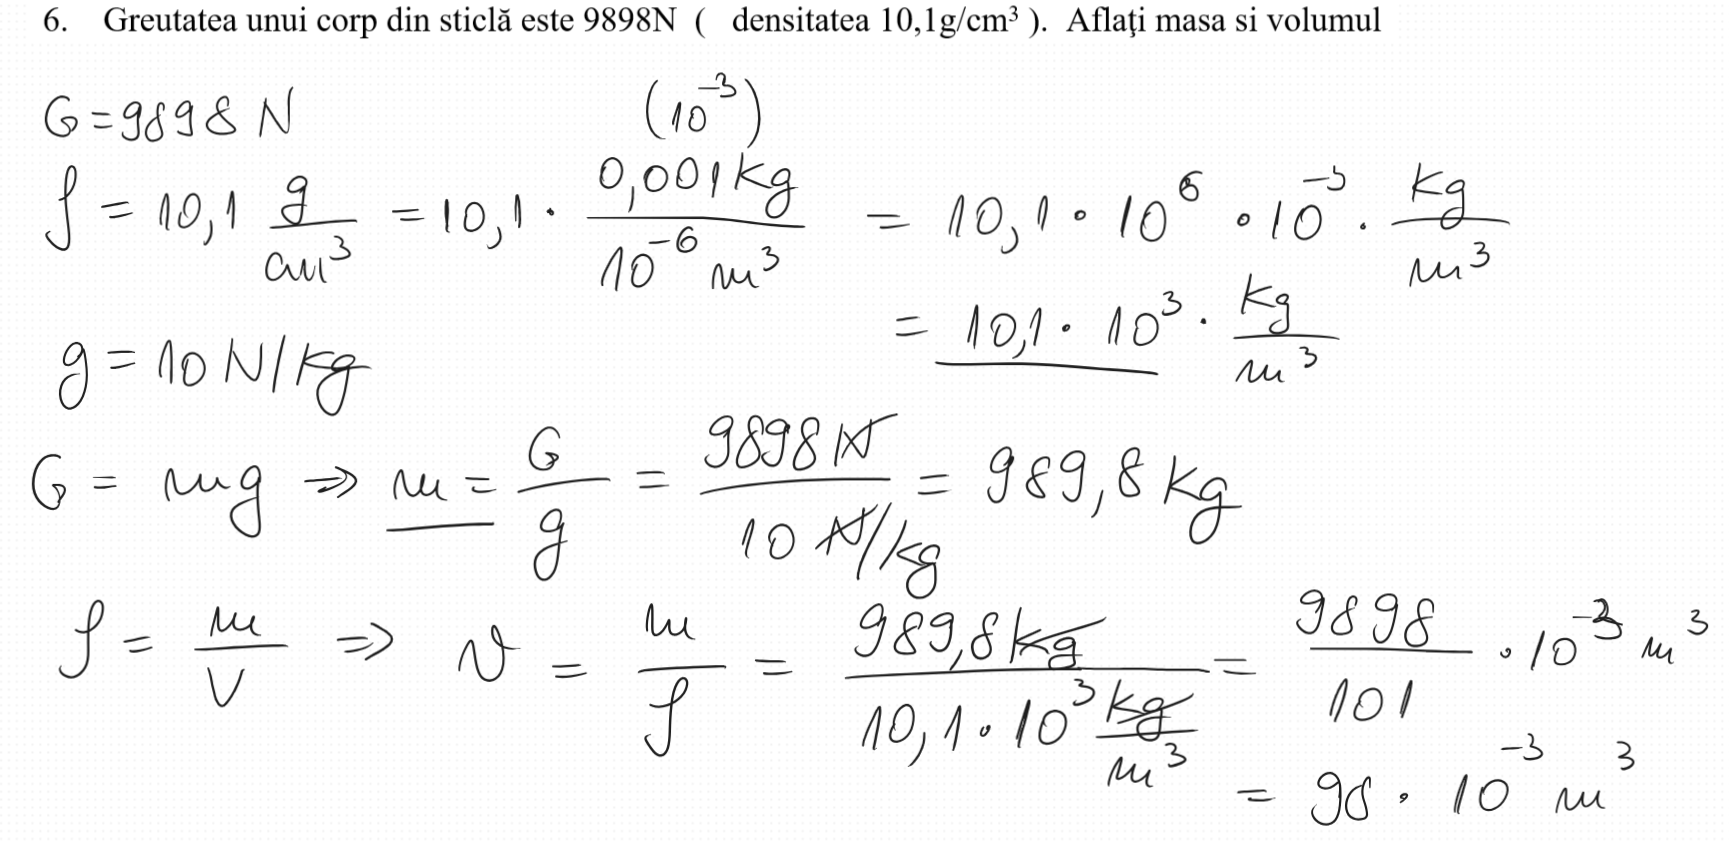 6. Greutatea unui corp din sticlă este 9898N ( densitatea 10,1g/cm³ ). Aflaţi masa si volumul
G = 9898 N
(10⁻³)
ρ = 10,1 g/cm³ = 10,1 · 0,001kg/10⁻⁶ m³ = 10,1 · 10⁶ · 10⁻³ · kg/m³
= 10,1 · 10³ · kg/m³
g = 10 N/kg
G = mg ⇒ m = G/g = 9898 N/10 N/kg = 989,8 kg
ρ = m/V ⇒ V = m/ρ = 989,8 kg/10,1 · 10³ kg/m³ = 9898/101 · 10⁻³ m³
= 98 · 10⁻³ m³